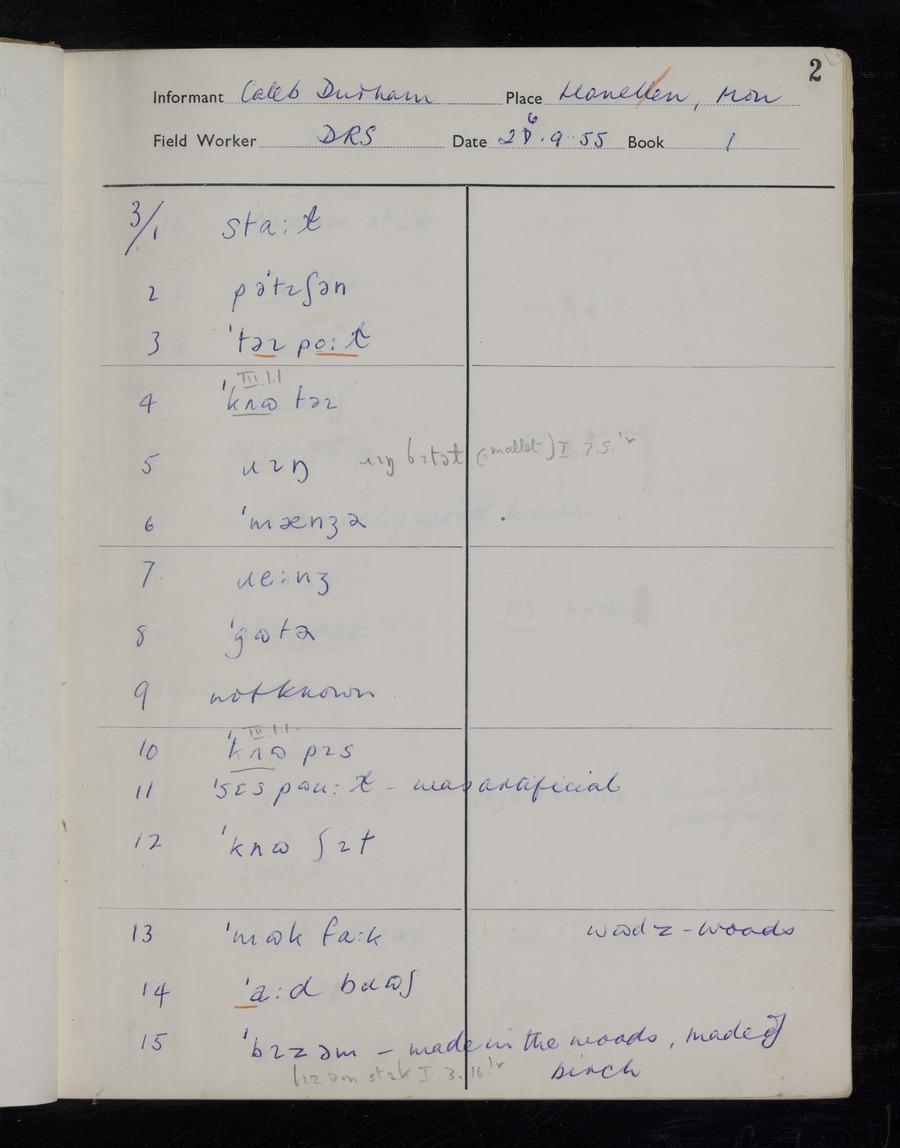 2
Informant Caleb Durham Place Llanellen, Mon
Field Worker DRS Date 26.9.55 Book 1
3/1 sta:t
2 pəˈtɪʃən
3 ˈtəɪ po:t
III.1.1
4 ˈkaɷ təɪ
5 ɹɪŋ ɹɪŋ bɪtət (=mallet) I.7.5. ˡʳ
6 ˈmænʒə
7 ɹe:nʒ
8 ˈgɷtə
9 not known
III.1.1.
10 ˈkaɷ pɪs
11 ˈsɛs - was artificial
12 ˈkaɷ ʃɪt
13 ˈmɷk fa:k wɷdz - woods
14 ˈa:d bɹɷʃ
15 ˈbɪzəm - made in the woods, made of
bɪzəm stɪk I.3.16. ˡʳ birch